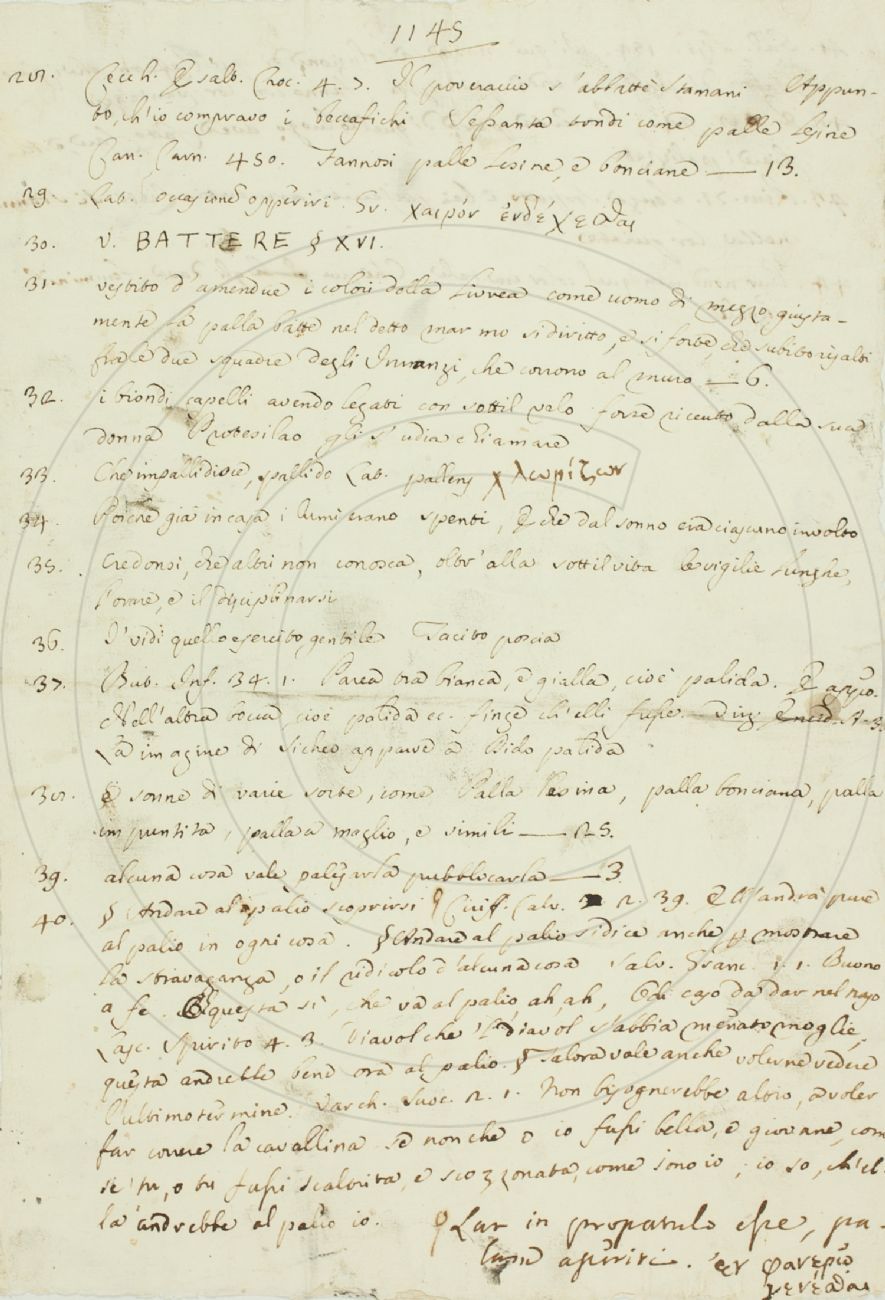 1145
28. Cecch. Esalt. Croc. 4. 7. Il poveraccio s'abbattè stamani Appun-
to, ch'io compravo i beccafichi Sessanta tondi come palle lesine
Can. Carn. 450. Fannosi palle lesine, e bonciane — 13.
29. Lat. occasione opperiri. Gr. χαιρόν ἐνδέχεσθαι
30. V. BATTERE § XVI.
31. vestito d'amendue i colori della livrea come uomo di mezzo giusta-
mente la palla batte nel detto marmo sì diritto, e sì forte, che subito risalti
fra le due squadre degli Innanzi, che corrono al muro — 6.
32. i biondi capelli avendo legati con sottil velo forse ricevuto dalla sua
donna Protesilao gli s'udia chiamare
33. Che impallidisce, pallido Lat. pallens χλωρίζων
34. Poichè già in casa i lumi erano spenti, E che dal sonno era ciascuno involto
35. Credonsi, che altri non conosca, oltr'alla sottil vita le vigilie lunghe,
l'orare, e il disciplinarsi
36. I' vidi quello esercito gentile Tacito poscia
37. But. Inf. 34. 1. Parea tra bianca, e gialla, cioè palida. E appo.
Nell'altra bocca, cioè palida ec. finge ch'elli fusse.
La imagine di Sicheo apparve a Dido palida
38. E sonne di varie sorte, come Palla lesina, palla bonciana, palla
impuntita, palla a maglio, e simili — 25.
39. alcuna cosa vale palesarla pubblicarla — 3
40. § Andare al palio scoprirsi § Ciriff. Calv. 2. 39. E s'andrà pure
al palio in ogni cosa. § Andare al palio si dice anche p mostrare
la stravaganza, o il ridicolo d'alcuna cosa Salv. Granc. 1. 1. Buono
a fe. E questa sì, che va al palio ah, ah, Odi caso da dar nel naso
Lasc. Spirito 4. 3. Diavol che 'l Diavol s'abbia menato moglie,
questa andrebbe bene ora al palio. § Talora vale anche volerne vedere
l'ultimo termine. Varch. Suoc. 2. 1. Non bisognerebbe altro, a voler
far correre la cavallina se non che o io fussi bella, e giovane, com
se' tu, o tu fussi scaltrita, e scozzonata, come sono io; io so, ch'el-
la andrebbe al palio io. § Lat in propatulo esse, pa-
lam aperiri. ἐν φανερῷ
γενέσθαι